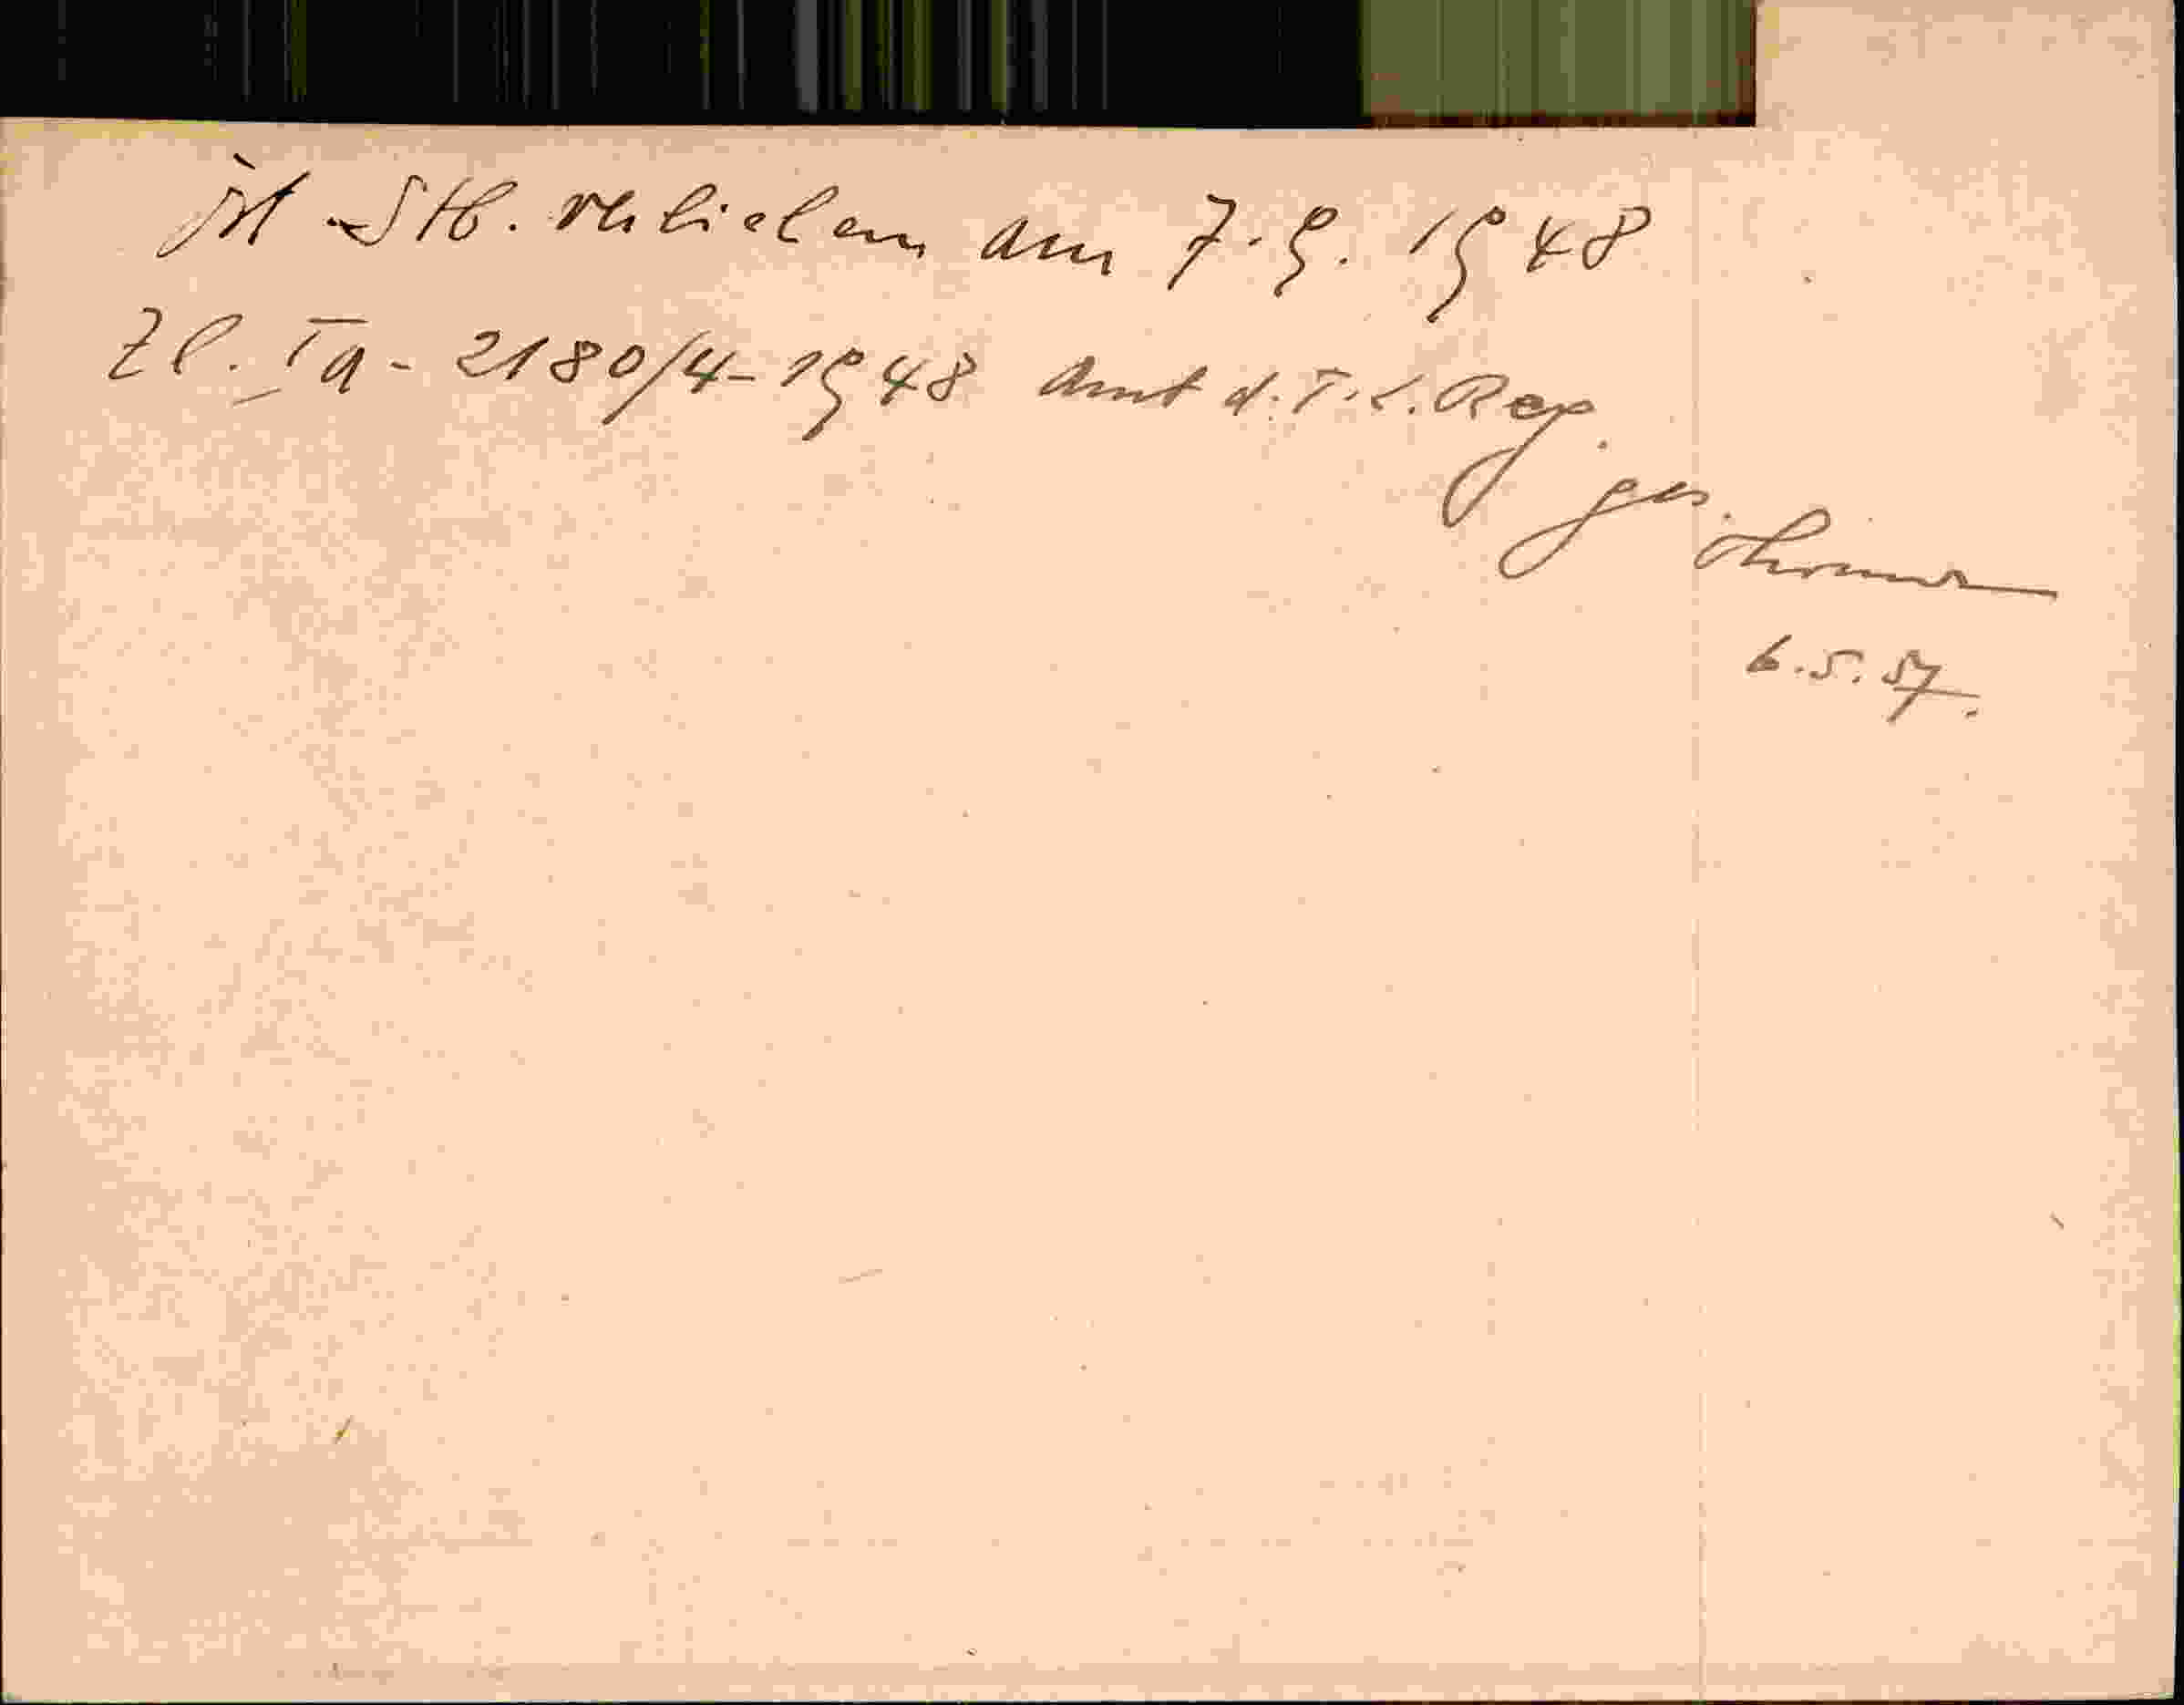 öst. Stb. verliehen am 7.9.1948
Zl. Ia-2180/4-1948 Amt d. T. L. Reg.
ges.
6.5.57.